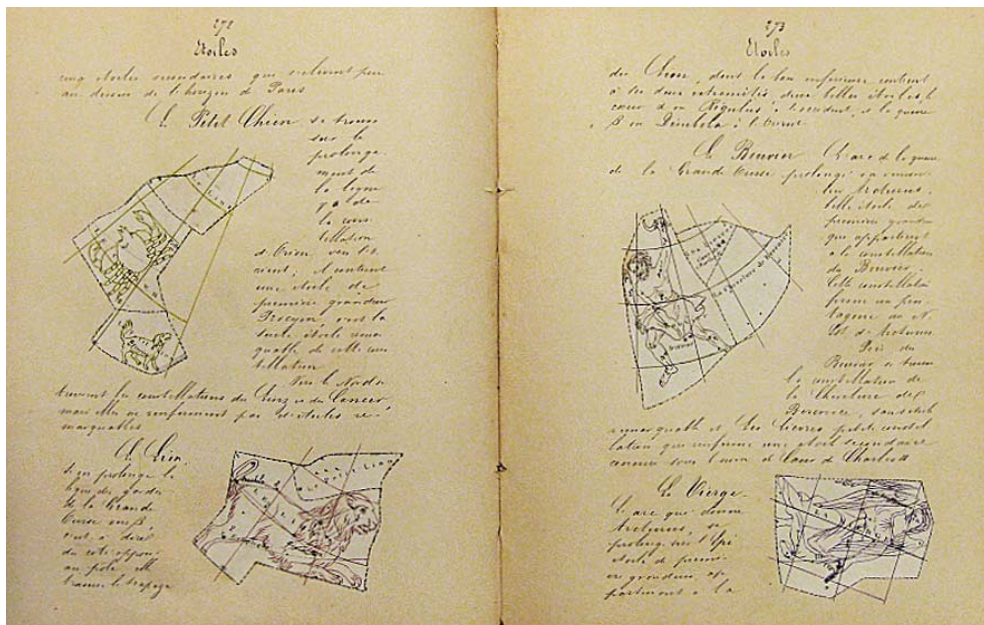 272
Etoiles
cinq étoiles secondaires qui s'élèvent peu
au dessus de l'horizon de Paris
Le Petit Chien se trouve
sur le
prolonge
ment de
la ligne
de
la cons
tellation
d'Orion vers
il contient
une étoile de
première grandeur
Procyon, c'est la
seule étoile remar
quable de cette cons
tellation
Vers le Nord se
trouvent les constellations du Linx et du Cancer
mais elles ne renferment pas d'étoiles re
marquables
Le Lion.
Si on prolonge la
ligne des gardes
de la Grande
Ourse
c'est à dire
du côté opposé
au pôle elle
trouve le trapèze
273
Etoiles
du Lion, dont la base inférieure contient
à ses deux extrémités deux belles étoiles, le
cœur ou Régulus à l'occident, et la queue
β ou Dénébola à l'Orient
Le Bouvier L'arc de la queue
de la Grande Ourse prolongé va
Arcturus,
belle étoile de
première grandeur
qui appartient
à la constellation
du Bouvier.
Cette constellation
forme un pen
tagone au N.
Est d'Arcturus
Près du
Bouvier se trouve
la constellation de
la Chevelure de
Bérénice, sans étoile
remarquable et Les Lévriers petite constel
lation qui renferme une étoile secondaire
connue sous le nom de Cœur de Charles II
La Chevelure de Bérénice
La Vierge.
L'arc qui donne
Arcturus, se
prolonge vers l'Épi
étoile de premi
ère grandeur, ap
partenant à la